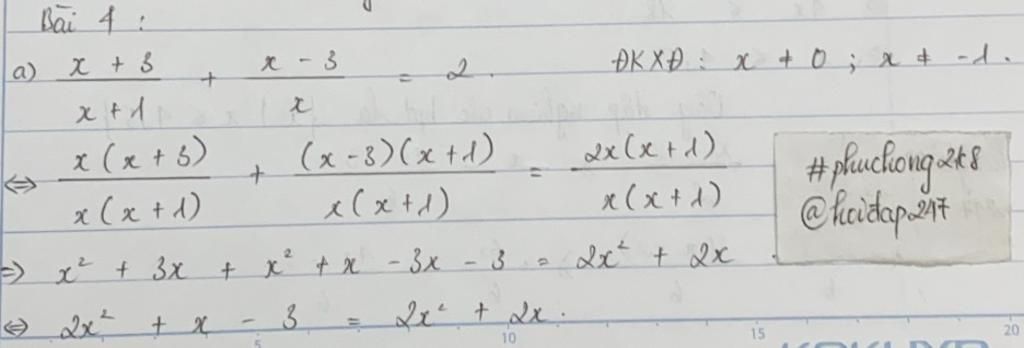 Bài 4 :
a) (x + 3)/(x + 1) + (x - 3)/x = 2. ĐKXĐ : x ≠ 0 ; x ≠ -1.
⇔ x(x + 3)/x(x + 1) + (x - 3)(x + 1)/x(x + 1) = 2x(x + 1)/x(x + 1)
#phuchong2k8
@hoidap247
⇒ x² + 3x + x² + x - 3x - 3 = 2x² + 2x
⇔ 2x² + x - 3 = 2x² + 2x.
5 10 15 20